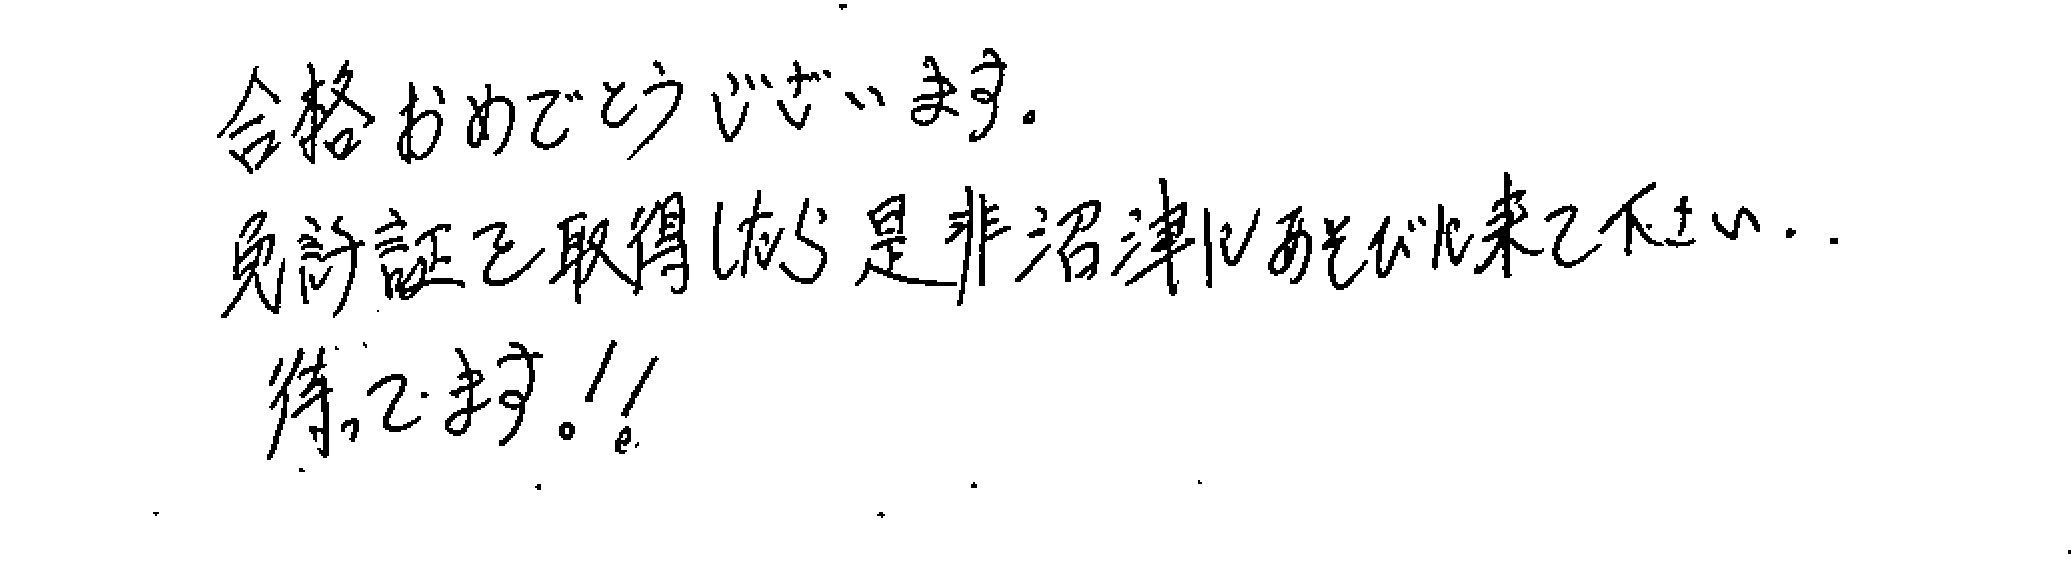 合格おめでとうございます.
免許証を取得したら是非沼津にあそびに来て下さい..
待ってます!!